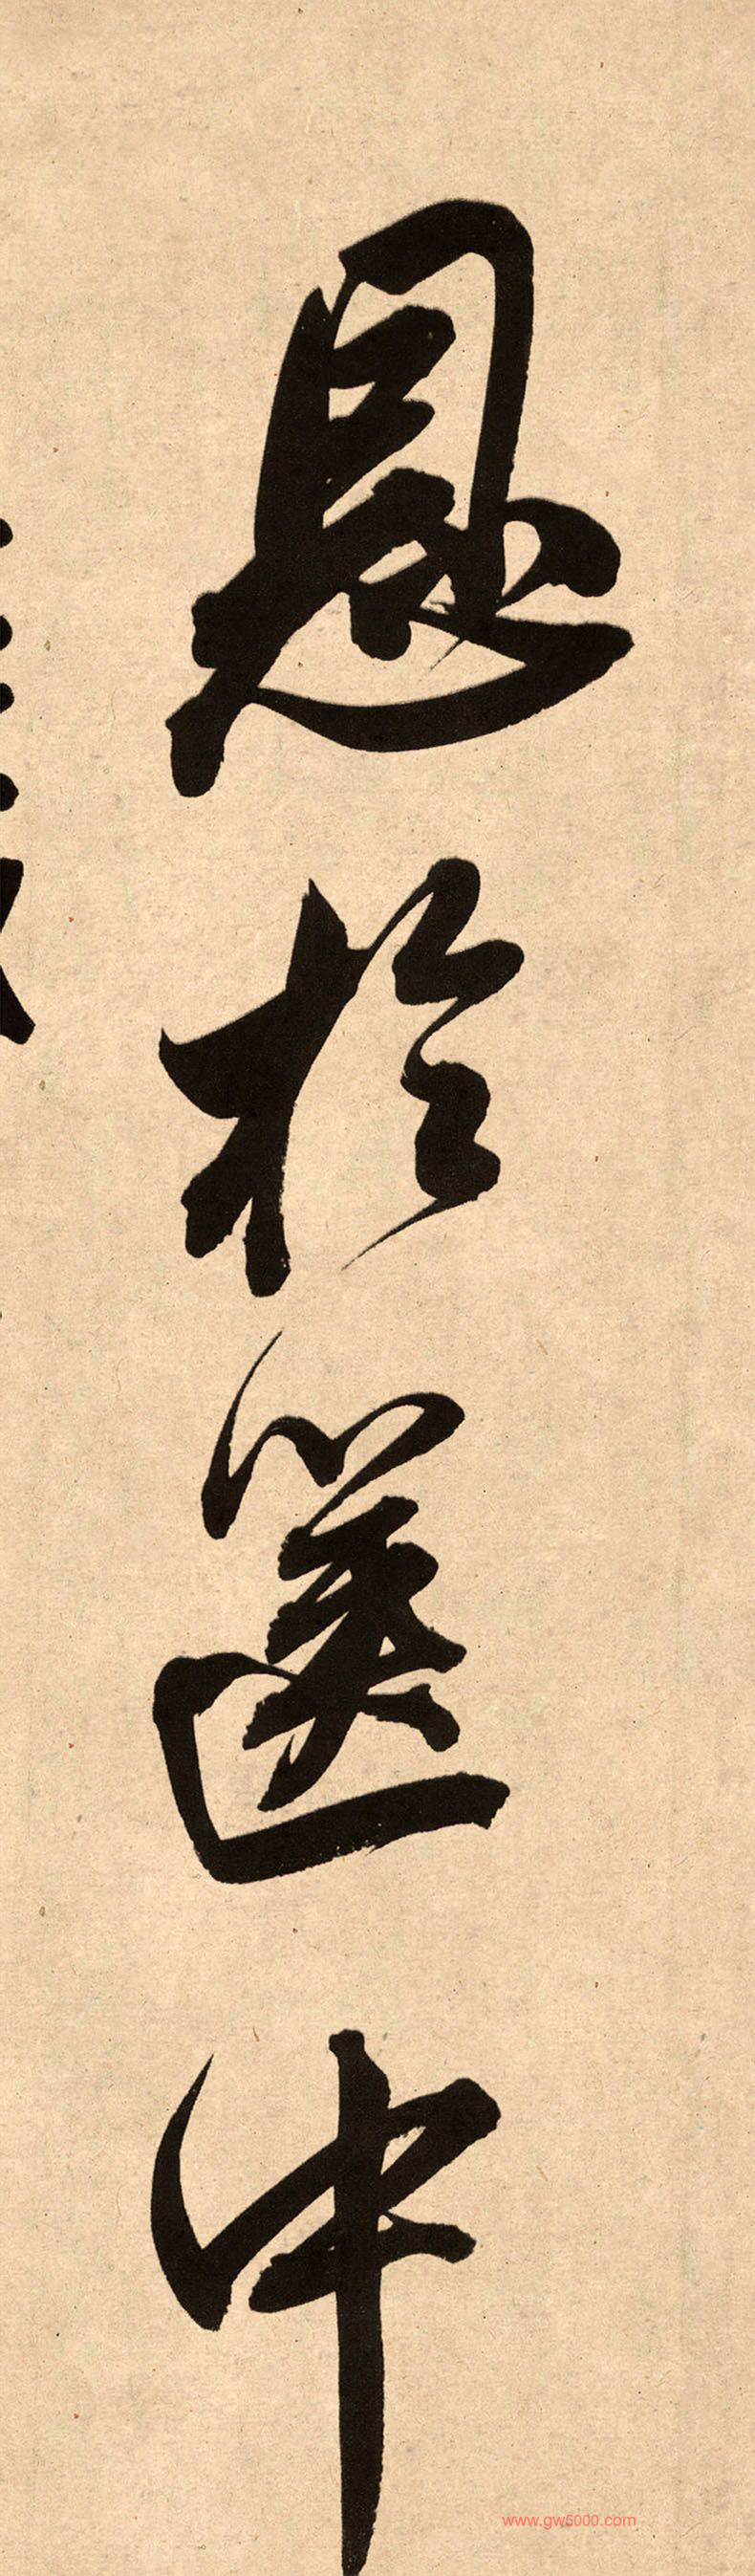 於篋中
www.gw5000.com